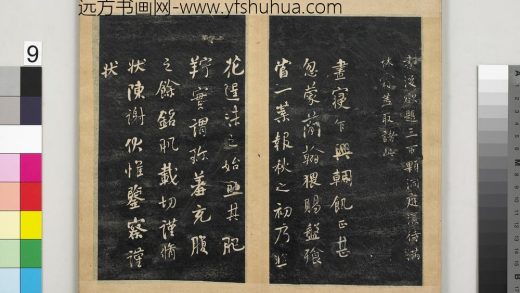 远方书画网-www.yfshuhua.com
9
晝寢乍興輖飢正甚
忽蒙簡翰猥賜盤飧
當一葉報秋之初乃韭
花逞味之始助其肥
羜實謂珍羞充腹
之餘銘肌載切謹脩
狀陳謝伏惟鑒察謹
狀